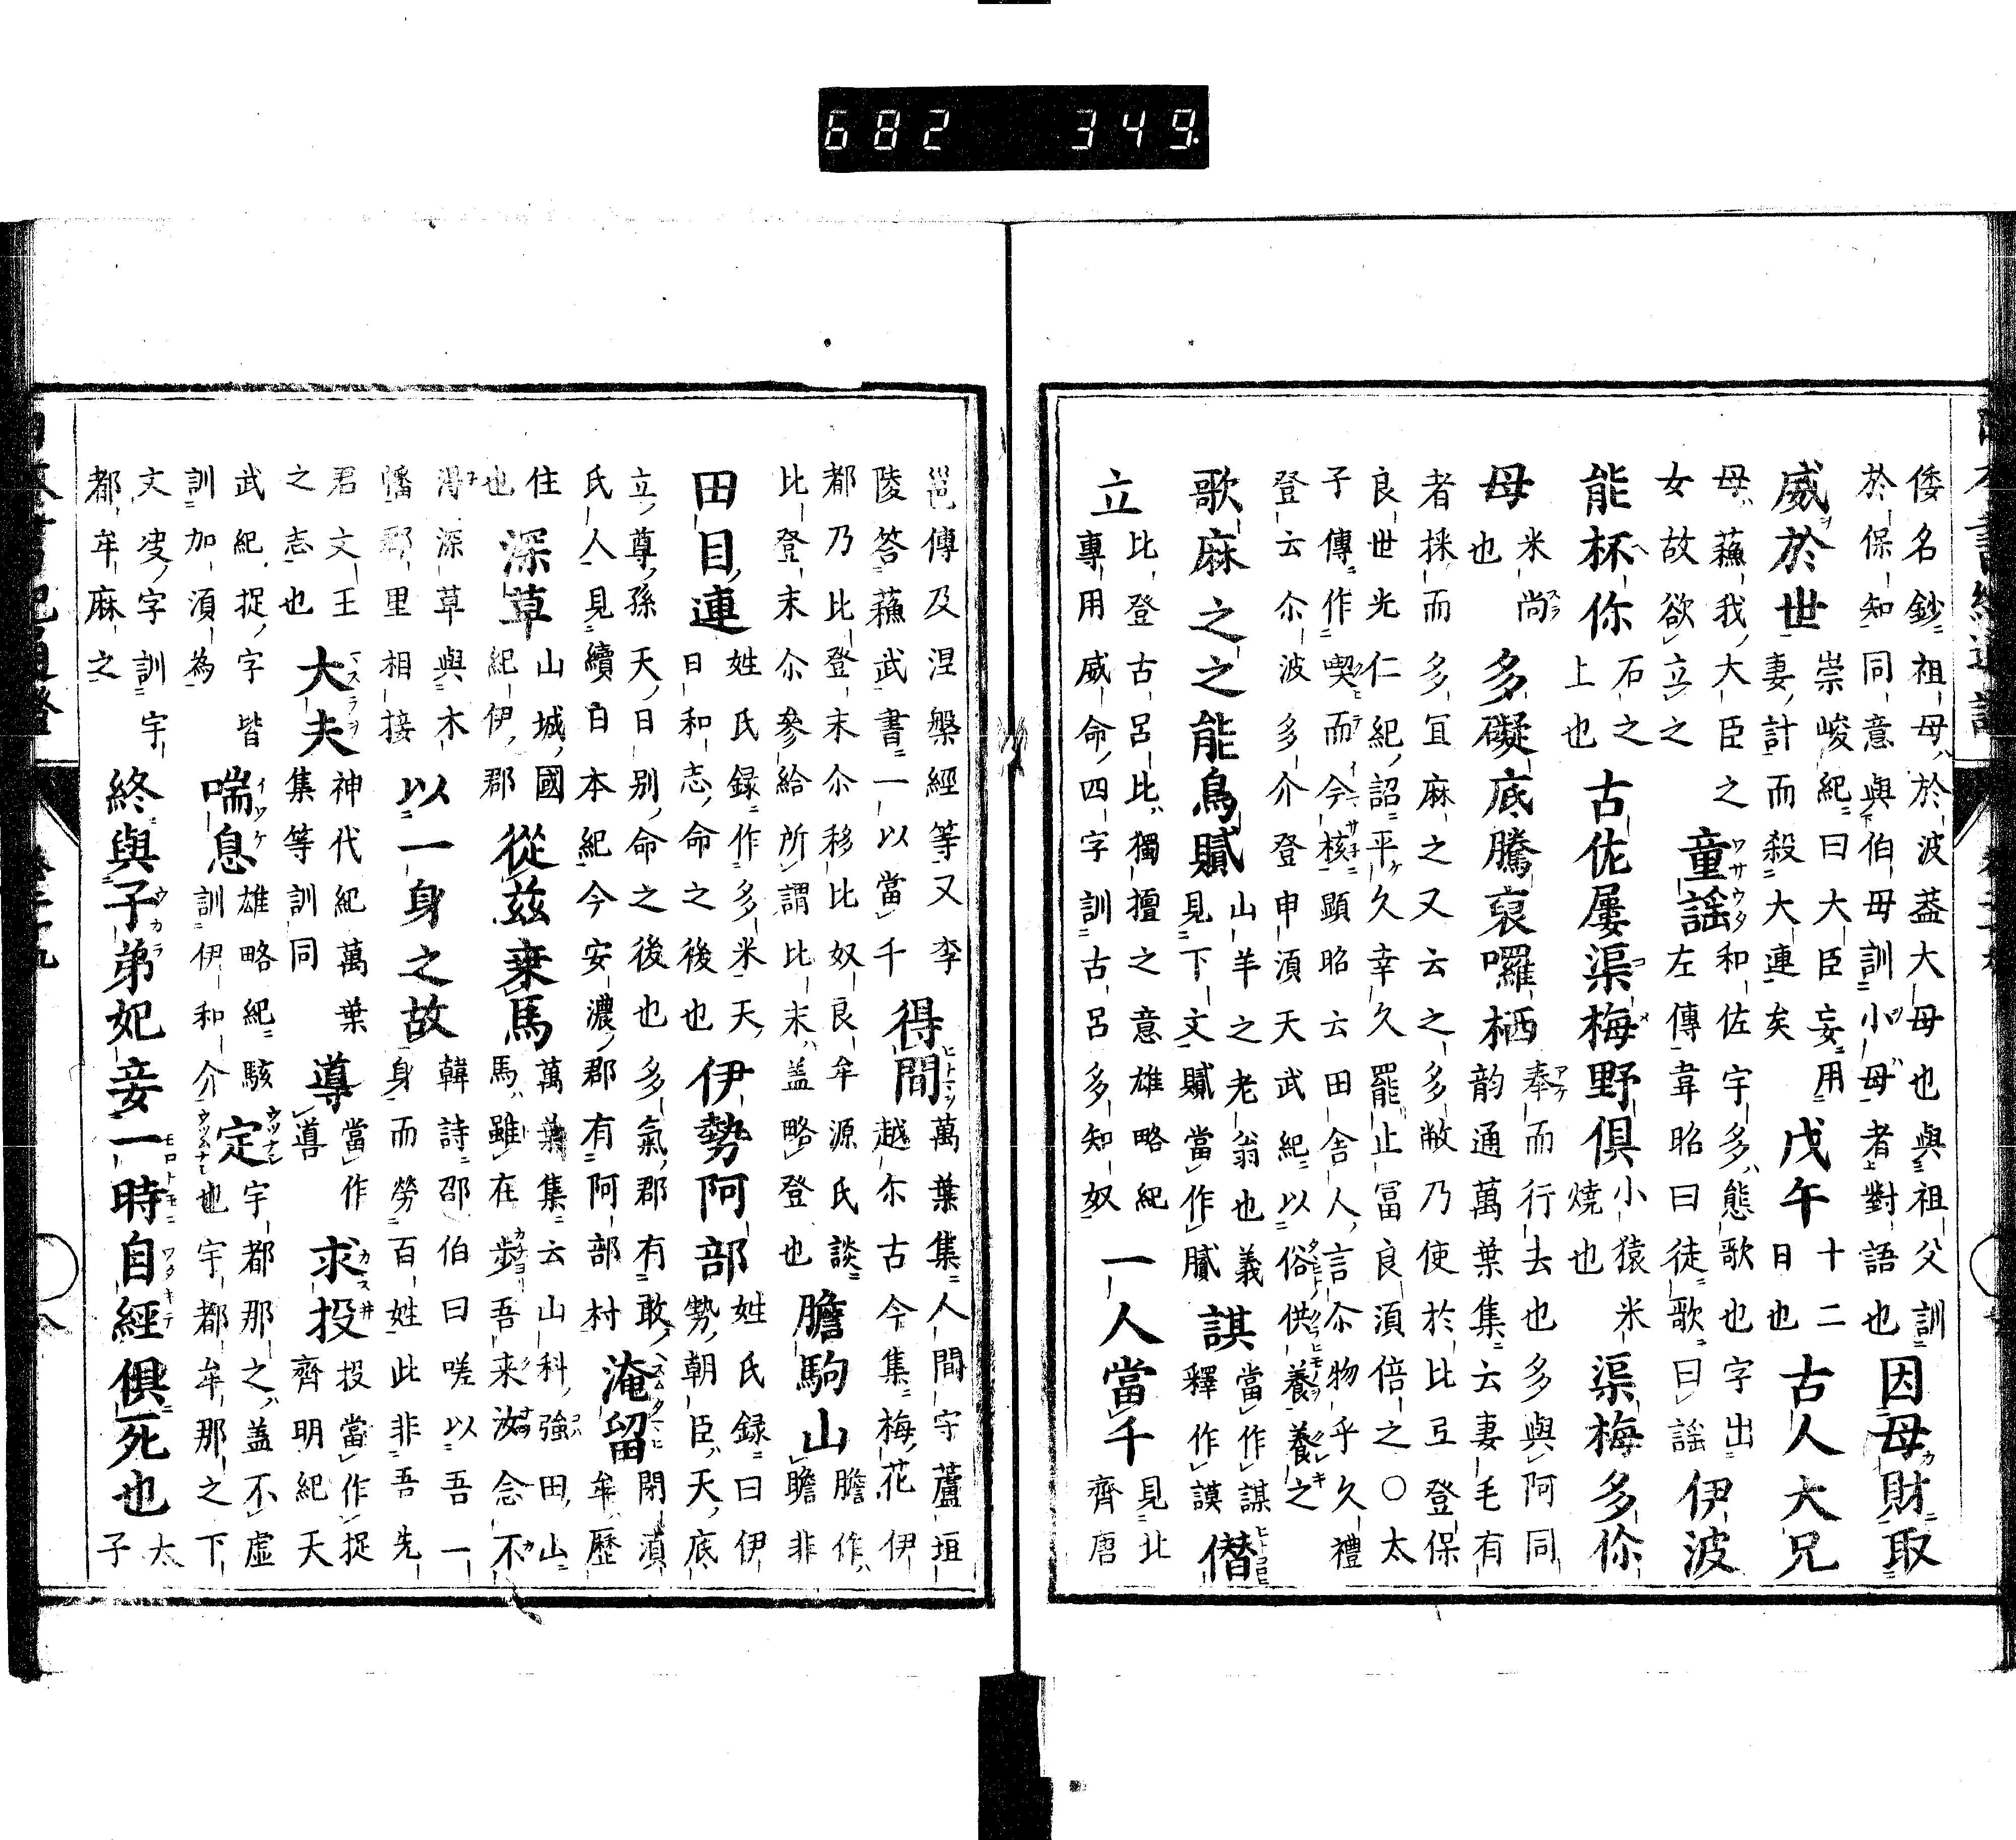 倭名鈔祖母於波蓋大母也與祖父訓
於保知同意與伯母訓小母者對語也
因母財取
威於世
崇峻紀曰大臣妄用
妻計而殺大連矣
戊午
十二
日也
古人大兄
母蘓我大臣之
女故欲立之
童謡
和佐宇多態歌也字出
左傳韋昭曰徒歌曰謡
伊波
能杯你
石之
上也
古佐屢渠梅野倶
小猿米
燒也
渠梅多你
母
米尚
也
多礙底騰裒囉栖
奉而行去也多與阿同
韵通萬葉集云妻毛有
者採而多冝麻之又云之多敝乃使於比亙登保
良世光仁紀詔平久幸久罷止冨良湏倍之〇太
子傳作喫而今核顕昭云田舎人言尒物乎久禮
登云尒波多介登申湏天武紀以俗供養養之
歌麻之之能烏膩
山羊之老翁也義
見下文膩當作膩
諆
當作謀
釋作謨
僭
立
比登古呂比獨擅之意雄略紀
專用威命四字訓古呂多知奴
一人當千
見北
齊唐
邕傳及涅槃經等又李
陵答蘓武書一以當千
得間
萬葉集人間守蘆垣
越尓古今集梅花伊
都乃比登末尒移比奴良牟源氏談
比登末尒參給所謂比末蓋略登也
膽駒山
膽作
瞻非
田目連
姓氏録作多米天
日和志命之後也
伊勢阿部
姓氏録曰伊
勢朝臣天底
立尊孫天日別命之後也多氣郡有敢
氏人見續日本紀今安濃郡有阿部村
淹留
閇湏
牟歷
住
也
深草
山城國
紀伊郡
從兹乗馬
萬葉集云山科強田山
馬雖在歩吾来汝念不
得深草與木
幡郡里相接
以一身之故
韓詩邵伯曰嗟以吾一
身而勞百姓此非吾先
君文王
之志也
大夫
神代紀萬葉
集等訓同
導
當作
導
求投
投當作捉
齊明紀天
武紀捉字皆
訓加湏為
喘息
雄略紀駭
訓伊和介
定
宇都那之蓋不虚
也宇都牟那之下
文叓字訓宇
都牟麻之
終與子弟妃妾一時自經俱死也
太
子
682 349